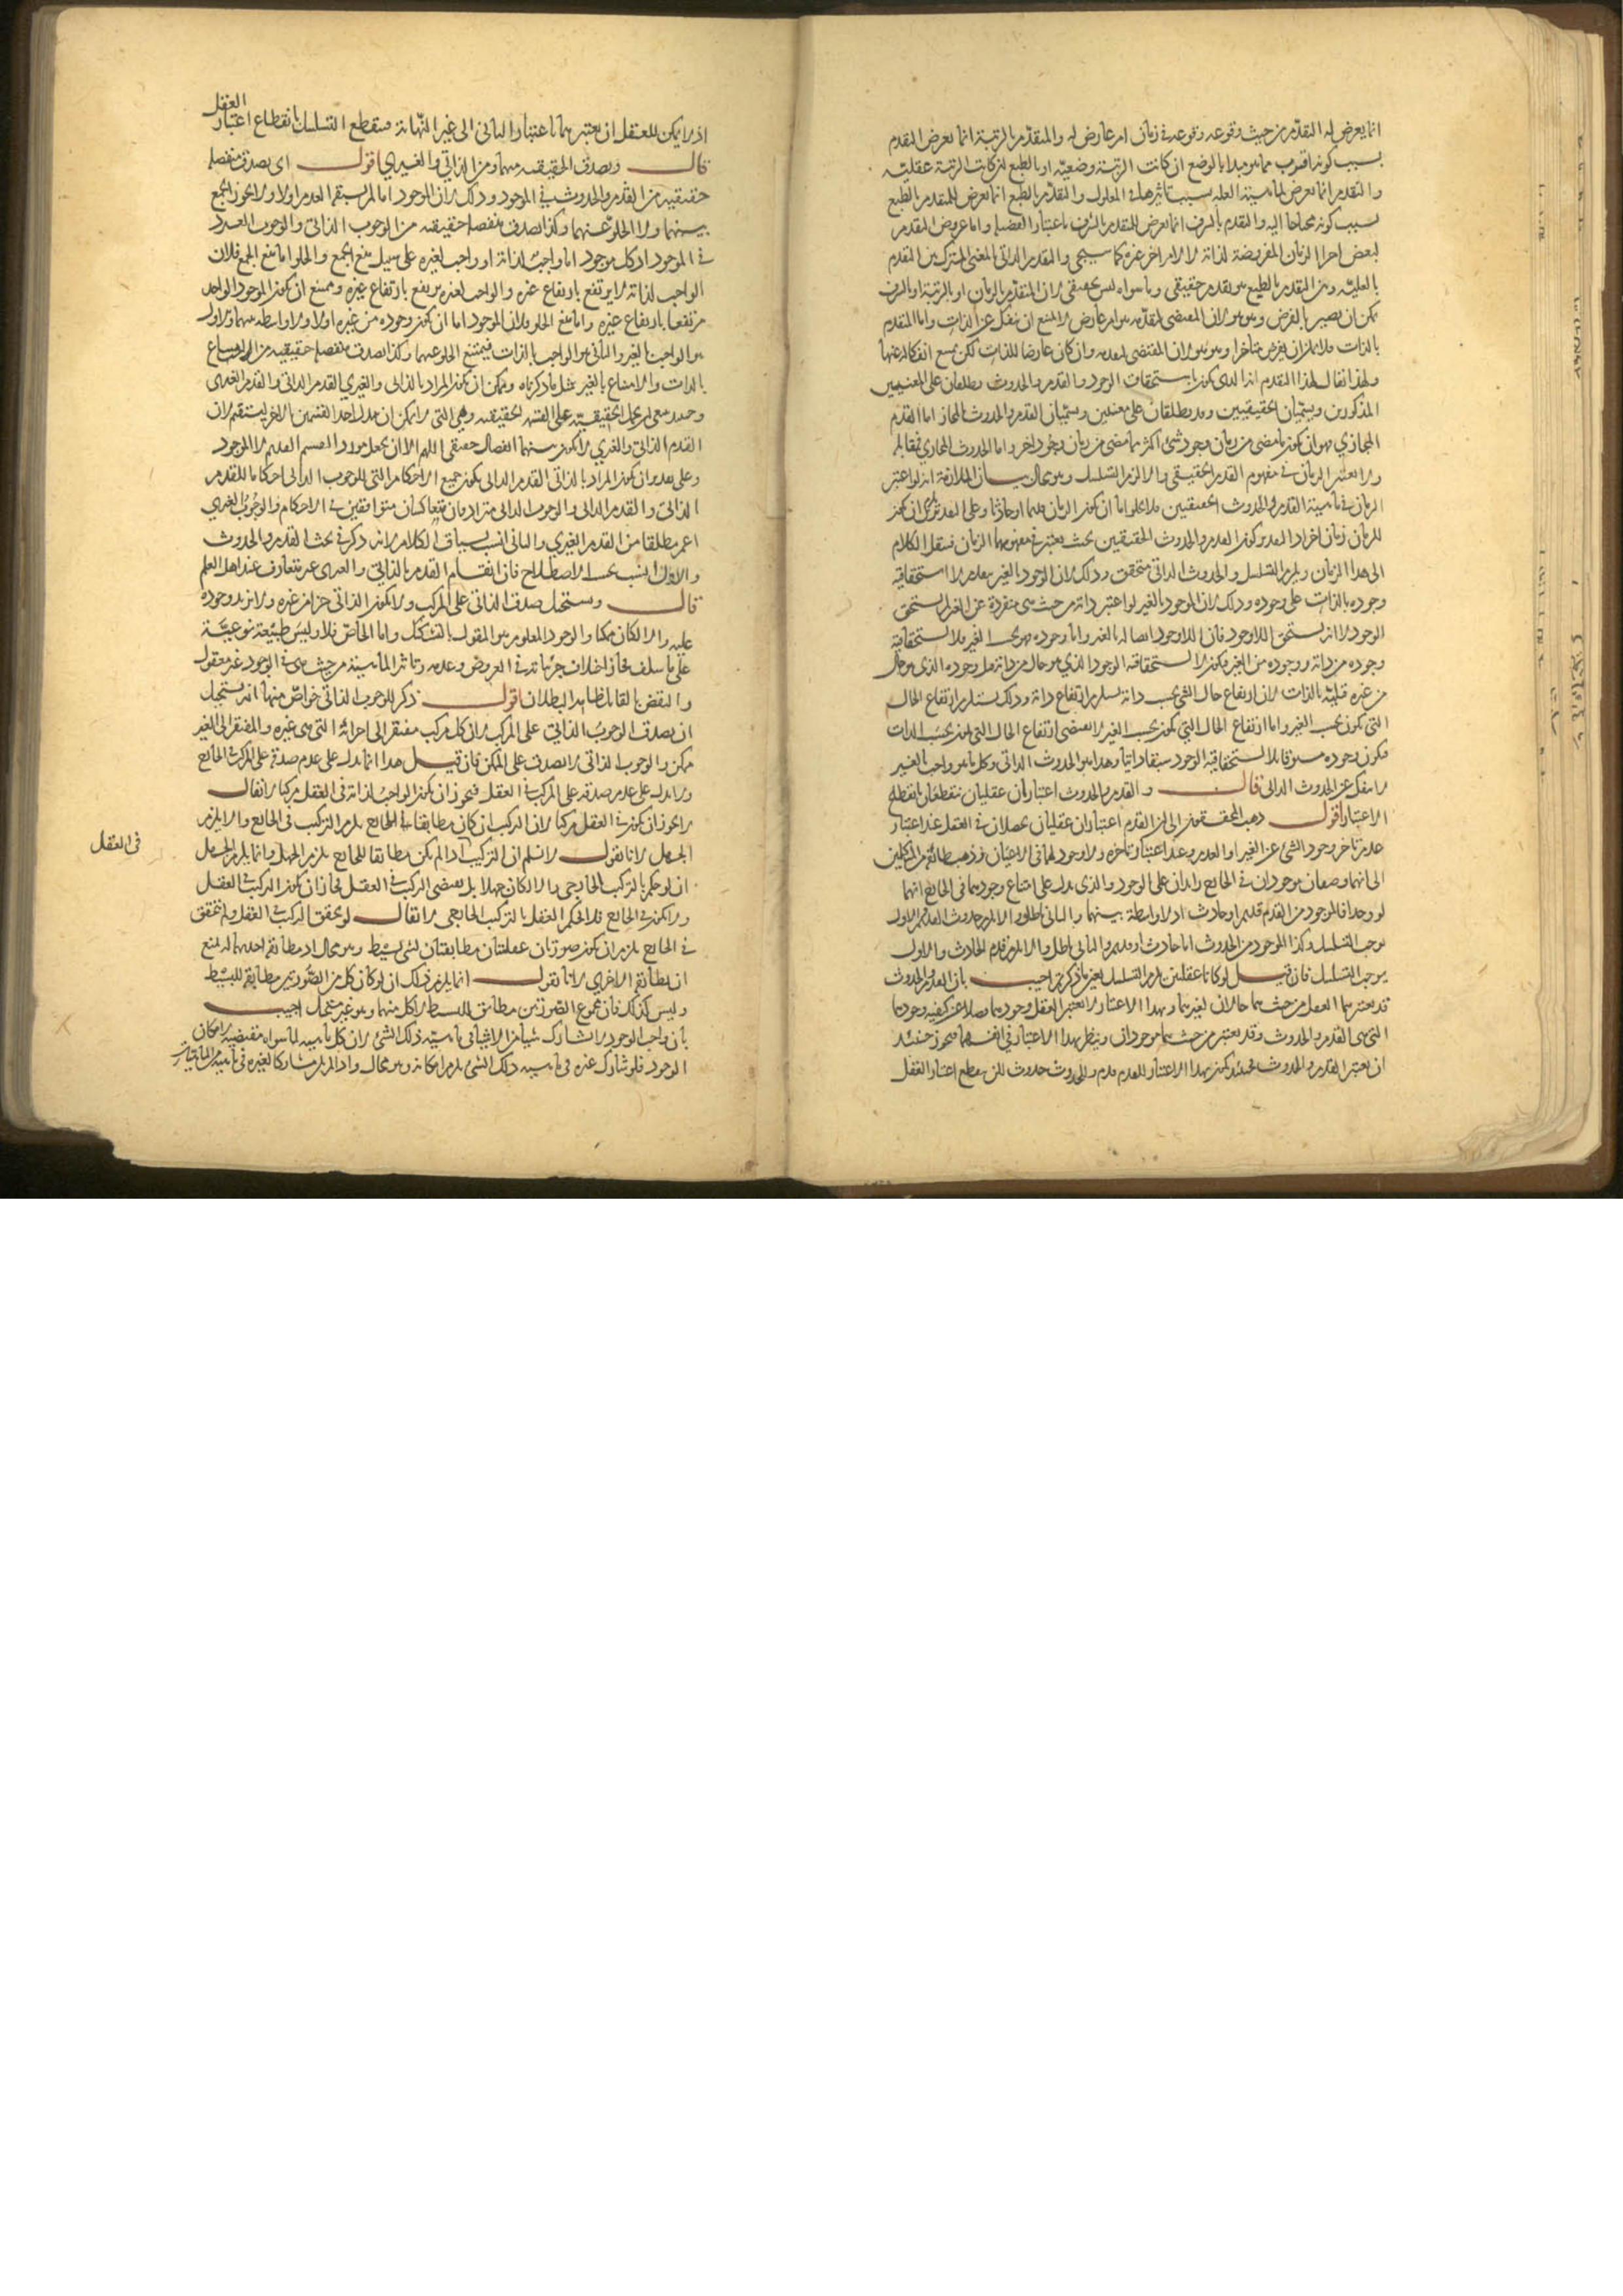 انما يعرض له التقدم من حيث وقوعه وقوعه في زمان امر عارض له والمتقدم بالرتبة انما يعرض له التقدم
بسبب كونه اقرب مما هو مبدا بالوضع ان كانت الرتبة وضعية او بالطبع ان كانت الرتبة عقلية
والتقدم انما يعرض لماهية العلة بسبب تاثيرها في المعلول والتقدم بالطبع انما يعرض للمتقدم بالطبع
بسبب كونه محتاجا اليه والتقدم بالشرف انما يعرض للمتقدم بالشرف باعتبار الفضيلة واما عروض التقدم
لبعض اجزا الزمان المفروضة لذاته لا لامر اخر غيره كما سيجي والتقدم الذاتي بالمعنى المشترك بين التقدم
بالعلية وبين التقدم بالطبع هو تقدم حقيقي وما سواه ليس بحقيقي لان المتقدم بالزمان او بالرتبة او بالشرف
يمكن ان يصير بالفرض وهو هو لان المقتضي لتقدمه هو امر عارض لا يمتنع ان ينفك عن الذات واما المتقدم
بالذات فلا يمكن ان يفرض متاخرا وهو هو لان المقتضي لتقدمه وان كان عارضا للذات لكن يمتنع انفكاكه عنها
ولهذا يقال لهذا التقدم انه الذي يكون باستحقاق الوجود والقدم والحدوث يطلقان على المعنيين
المذكورين ويسميان الحقيقيين وقد يطلقان على معنيين ويسميان القدم والحدوث بالمجاز اما القدم
المجازي فهو ان يكون ما مضى من زمان وجود شئ اكثر مما مضى من زمان وجود اخر واما الحدوث المجازي فمقابله
ولا يعتبر الزمان في مفهوم القدم الحقيقي والا لزم التسلسل وهو محال بيان الملازمة انه لو اعتبر
الزمان في ماهية القدم والحدوث الحقيقيين فلا يخلو اما ان يكون الزمان قديما او حادثا وعلى التقديرين يلزم ان يكون
للزمان زمان اخر اذ التقدير كون القدم والحدوث الحقيقيين بحيث يعتبر في مفهومهما الزمان فننقل الكلام
الى هذا الزمان ويلزم التسلسل والحدوث الذاتي متحقق وذلك لان الوجود بالغير يتقدم لا استحقاقية
وجوده بالذات على وجوده وذلك لان الموجود بالغير لو اعتبر ذاته من حيث هي منفردة عن الغير لم يستحق
الوجود لا انه يستحق اللاوجود فان اللاوجود ايضا له بالغير واما وجوده فهو بحسب الغير فلا استحقاقية
وجوده من ذاته ووجوده من الغير فيكون لا استحقاقية الوجود الذي هو حال من ذاته قبل وجوده الذي هو حال
من غيره قبلية بالذات لان ارتفاع حال الشئ بحسب ذاته يستلزم ارتفاع ذاته وذلك يستلزم ارتفاع الحال
التي تكون بحسب الغير واما ارتفاع الحال التي تكون بحسب الغير لا يقتضي ارتفاع الحال التي تكون بحسب الذات
فيكون وجوده مسبوقا بلا استحقاقية الوجود سبقا ذاتيا وهذا هو الحدوث الذاتي وكل ما هو واجب بالغير
لا ينفك عن الحدوث الذاتي قال والقدم والحدوث اعتباران عقليان ينقطعان بانقطاع
الاعتبار اقول ذهب المحققون الى ان القدم اعتباران عقليان يحصلان في العقل عند اعتبار
عدم تاخر وجود الشئ عن الغير او العدم وعند اعتبار تاخره ولا وجود لهما في الاعيان وذهب طائفة من المتكلمين
الى انهما وصفان موجودان في الخارج زايدان على الوجود والذي يدل على امتناع وجودهما في الخارج انهما
لو وجدا فالموجود من القدم قديم او حادث اذ لا واسطة بينهما والثاني باطل والا لزم حدوث القديم والاول
يوجب التسلسل وكذا الموجود من الحدوث اما حادث او قديم والثاني باطل والا لزم قدم الحادث والاول
يوجب التسلسل فان قيل لو كانا عقليين يلزم التسلسل بعين ما ذكرتم اجيب بان القدم والحدوث
قد يعتبرهما العقل من حيث هما حالان لغيرهما وبهذا الاعتبار لا يعتبر العقل وجودهما فضلا عن كيفية وجودهما
التي هي القدم والحدوث وقد يعتبر من حيث هما موجودان وينظر بهذا الاعتبار في انفسهما فيجوز حينئذ
ان يعتبر القدم والحدوث فحينئذ يكون بهذا الاعتبار للقدم قدم وللحدوث حدوث لكن ينقطع اعتبار العقل
اذ لا يمكن للعقل ان يعتبرهما باعتبار الثاني الى غير النهاية فينقطع التسلسل بانقطاع اعتبار العقل
قال ويصدق الحقيقية منهما ومن الذاتي والغيري اقول اي يصدق منفصلة
حقيقية من القدم والحدوث في الموجود وذلك لان الموجود اما لم يسبقه العدم اولا ولا يجوز الجمع
بينهما ولا الخلو عنهما وكذا يصدق منفصلة حقيقية من الوجوب الذاتي والوجوب الغيري
في الموجود اذ كل موجود اما واجب لذاته او واجب لغيره على سبيل منع الجمع والخلو اما منع الجمع فلان
الواجب لذاته لا يرتفع بارتفاع غيره والواجب لغيره يرتفع بارتفاع غيره ويمتنع ان يكون الموجود الواحد
مرتفعا بارتفاع غيره واما منع الخلو فلان الموجود اما ان يكون وجوده من غيره اولا ولا واسطة بينهما والاول
هو الواجب بالغير والثاني هو الواجب بالذات فيمتنع الخلو عنهما وكذا يصدق منفصلة حقيقية من الامتناع
بالذات والامتناع بالغير مثل ما ذكرناه ويمكن ان يكون المراد بالذاتي والغيري القدم الذاتي والقدم الغيري
القدم الذاتي والغيري لا يكون بينهما انفصال حقيقي اللهم الا ان يجعل مورد القسم القديم لا الموجود
وعلى تقدير ان يكون المراد بالذاتي القدم الذاتي يكون جميع الاحكام التي للوجوب الذاتي احكاما للقدم
الذاتي والقدم الذاتي والوجوب الذاتي مترادفان متعاكسان متوافقين في الاحكام والوجوب الغيري
اعم مطلقا من القدم الغيري والثاني انسب بسياق الكلام لانه ذكر في بحث القدم والحدوث
والاول انسب بحسب الاصطلاح فان انقسام القدم بالذاتي والغيري غير متعارف عند اهل العلم
قال ويستحيل صدق الذاتي على المركب ولا يكون الذاتي جزا من غيره ولا يزيد وجوده
عليه والا لكان ممكنا والوجود المعلوم هو المقول بالتشكيك واما الخاص فلا وليس طبيعة نوعية
على ما سلف فجاز اختلاف جزئياته في العروض وعدمه وتاثير الماهية من حيث هي في الوجود غير معقول
والنقض بالقابل ظاهر البطلان اقول ذكر للوجوب الذاتي خواص منها انه يستحيل
ان يصدق الوجوب الذاتي على المركب لان كل مركب مفتقر الى اجزائه التي هي غيره والمفتقر الى الغير
ممكن والوجوب الذاتي لا يصدق على الممكن فان قيل هذا انما يدل على عدم صدقه على المركب في الخارج
ولا يدل على عدم صدقه على المركب في العقل فيجوز ان يكون الواجب لذاته في العقل مركبا لا يقال
لا يجوز ان يكون في العقل مركبا لان التركيب ان كان مطابقا في الخارج يلزم التركيب في الخارج والا يلزم
الجهل لانا نقول لا نسلم ان التركيب اذا لم يكن مطابقا للخارج يلزم الجهل وانما يلزم الجهل
ان لو حكم بالتركيب الخارجي والا لكان جهلا بل يقتضي التركيب في العقل فجاز ان يكون التركيب في العقل
في العقل
ولا يكون في الخارج فلا يحكم العقل بالتركيب الخارجي لا يقال لو تحقق التركيب في العقل ولم يتحقق
في الخارج يلزم ان يكون صورتان عقليتان مطابقتان لشئ بسيط وهو محال اذ مطابقة احديهما له يمنع
ان يطابقه الاخرى لانا نقول انما يلزم ذلك ان لو كان كل من الصورتين مطابقة للبسيط
وليس كذلك فان مجموع الصورتين مطابق للبسيط لا كل منهما وهو غير مستحيل اجيب
بان واجب الوجود لا يشارك شيا من الاشيا في ماهية ذلك الشئ لان كل ماهية لما سواه مقتضية لامكان
الوجود فلو شارك غيره في ماهية ذلك الشئ يلزم امكانه وهو محال واذا لم يكن مشاركا لغيره في ماهية من الماهيات